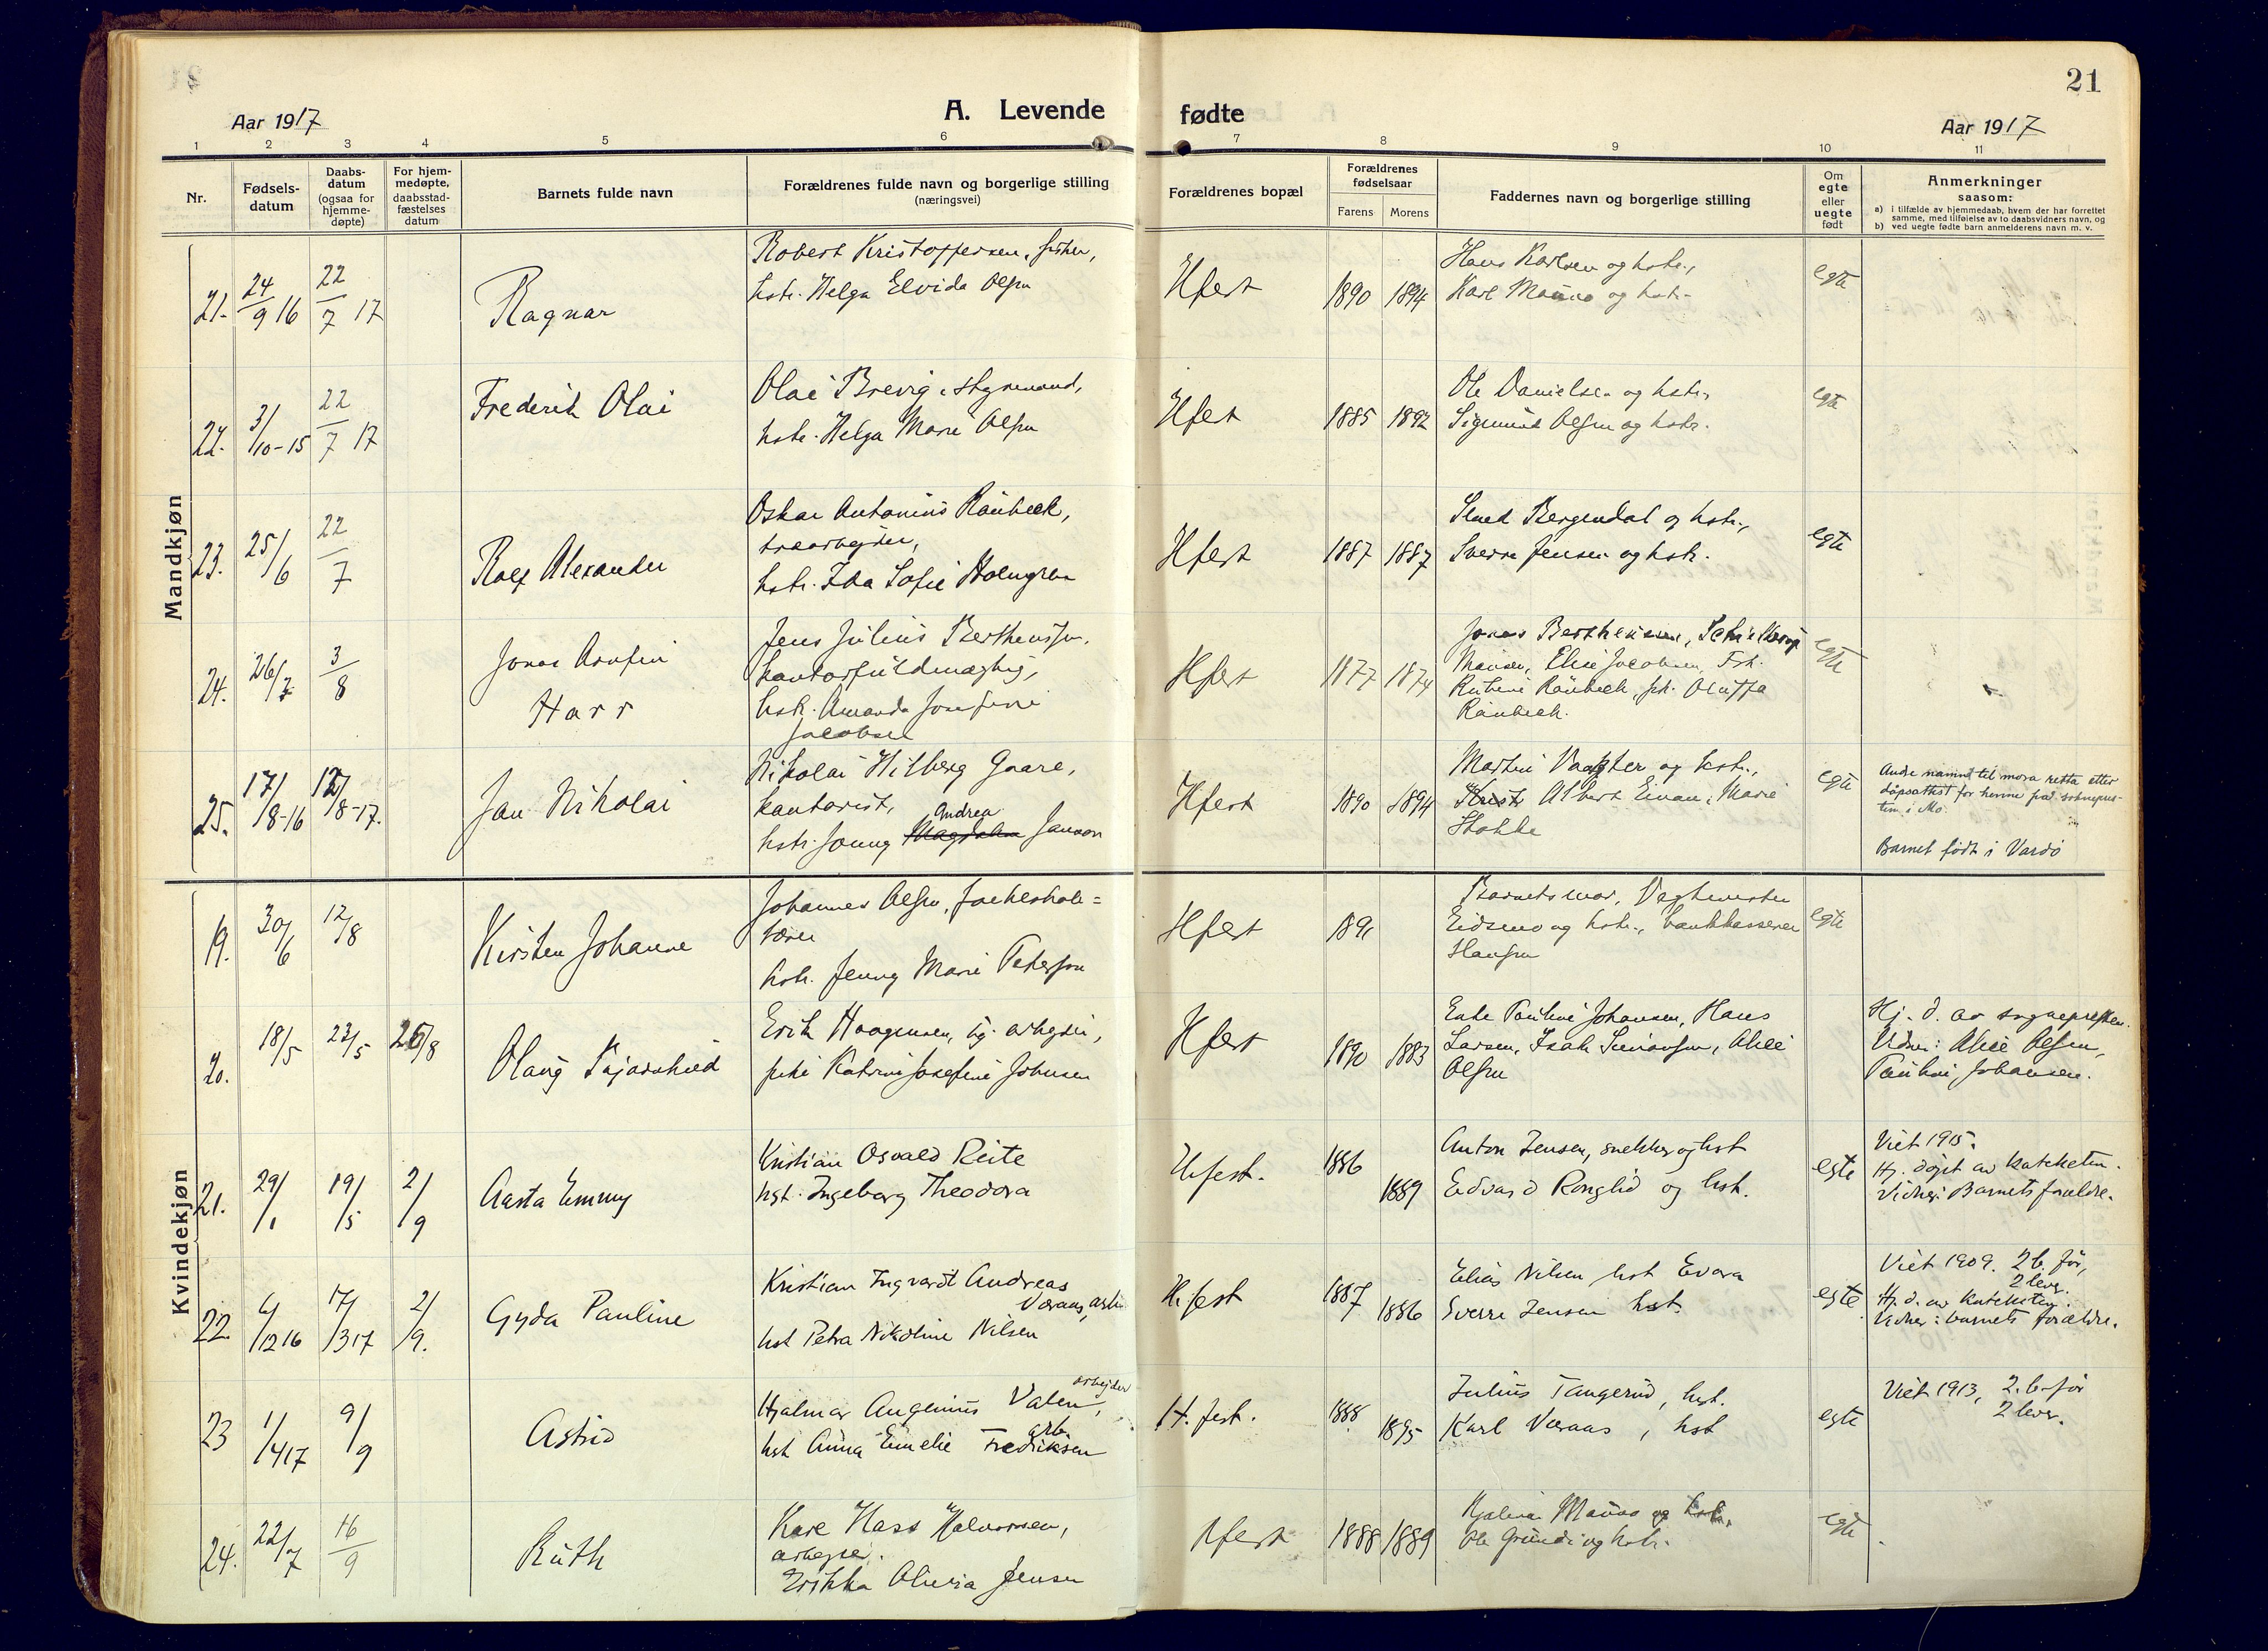 21
Aar 1917
A. Levende fødte
Aar 1917
1 2 3 4 5 6 7 8 9 10 11
Nr.
Fødsels-
datum
Daabs-
datum
(ogsaa for
hjemme-
døpte)
For hjem-
medøpte,
daabsstad-
fæstelses
datum
Barnets fulde navn
Forældrenes fulde navn og borgerlige stilling
(næringsvei)
Forældrenes bopæl
Forældrenes
fødselsaar
Farens Morens
Faddernes navn og borgerlige stilling
Om
egte
eller
uegte
født
Anmerkninger
saasom:
a) i tilfælde av hjemmedaab, hvem der har forrettet
samme, med tilføielse av to daabsvidners navn, og
b) ved uegte fødte barn anmelderens navn m. v.
Mandkjøn
21. 24/9 16 22/7 17
Ragnar
Robert Kristoffersen, fisker,
hstr. Helga Elvida Olsen
Hfest 1890 1894
Hans Karlsen og hstr.,
Karl Mauno og hstr.
egte
22. 3/10-15 22/7 17
Frederik Olai
Olai Brevig, styrmand,
hstr. Helga Marie Olsen
Hfest 1885 1892
Ole Danielsen og hstr.,
Sigmund Olsen og hstr.
egte
23. 25/6 22/7
Rolf Alexander
Oskar Antonius Raubeck,
træarbejder,
hstr. Ida Sofie Holmgren
Hfest 1887 1887
Bergendal og hstr.,
Sverre Jensen og hstr.
egte
24. 26/7 3/8
Jonas Arnfin
Harr
Jens Julius Berthensen,
kontorfuldmægtig,
hstr. Amanda Josefine
Jacobsen
Hfest 1877 1874
Jonas Berthensen,
Elise Jacobsen, Frk.
Raubeck, frk. Oluffa
Raubeck.
egte
25. 17/8-16 12/8-17.
Jan Nikolai
Nikolai Hilberg Gaare,
kontorist,
Andrea
hstr. Jenny Magdalena Janson
Hfest 1890 1894
Martin Vagter og hstr.,
Albert Einan, Marie
Stokke
egte
Andre namnet til mora retta etter
dåpsattest for henne frå soknepres-
ten i Mo.
Barnet født i Vardø
Kvindekjøn
19. 30/6 12/8
Kirsten Johanne
Johannes Olsen, folkeskole=
lærer
hstr. Jenny Marie Petersen
Hfest 1891
Barnets mor, Vegtmester
Eidsmo og hstr., bankkasserer
Hansen
egte
20. 18/5 23/5 26/8
Olaug
Erik Haagensen, arbejder,
pike Katrine Josefine Johnsen
Hfest 1890 1883
Enke Pauline Johansen, Hans
Larsen, Isak Simonsen, Alice
Olsen
Hj. d. av sognepresten.
Vidner: Alice Olsen,
Pauline Johansen.
21. 29/1 19/5 2/9
Aasta Emmy
Kristian Osvald Reite
hst. Ingeborg Theodora
H.fest. 1886 1889
Anton Jensen, snekker og hst
Edvard Ronglid og hst.
egte
Viet 1915.
Hj. døpt av kateketen.
Vidner: Barnets forældre.
22. 6/12 16 17/3 17 2/9.
Gyda Pauline
Kristian Ingvardt Andreas
Væraas, arb.
hst Petra Nikoline Nilsen
H.fest 1887 1886
Elias Nilsen, hst Evara
Sverre Jensen hst.
egte
Viet 1909. 2 b. før,
2 lever.
Hj. d. av kateketen.
Vidner: barnets forældre.
23 1/4 17 9/9
Astrid
arbejder
Hjalmar Angenius Valen,
arb.
hst Anna Emelie Fredriksen
H. fest. 1888 1895
Julius Tangerud, hst.
Karl Væraas, hst
egte
Viet 1913, 2. b. før
2 lever.
24. 22/7 16/9
Ruth
Kare Hass Halvorsen,
arbejder.
Erikka Oluvia Jensen
Hfest 1888 1889
Hjalmar Mauno og hstr.,
Ole Grundi og hstr.
egte